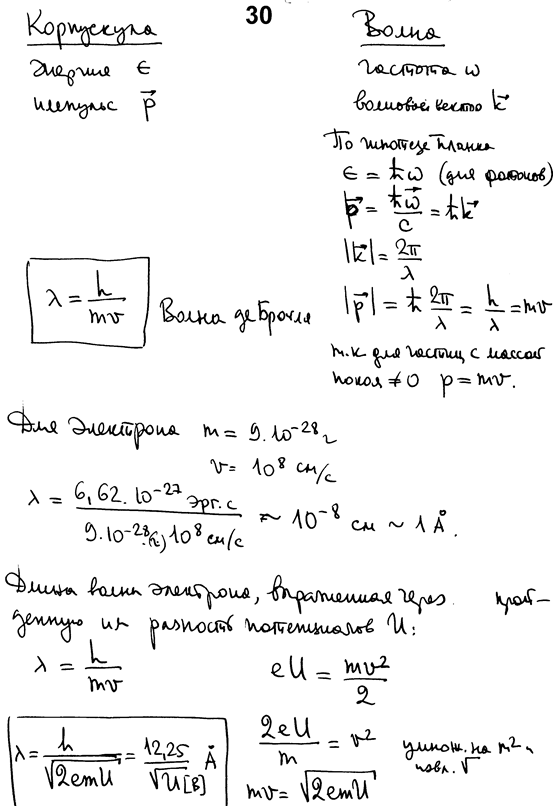 30
Корпускула Волна
энергия ε частота ω
импульс p⃗ волновой вектор k⃗
По гипотезе Планка
ε = ħω (для фотонов)
p⃗ = ħω⃗/c = ħk⃗
|k⃗| = 2π/λ
λ = h/mv Волна де Бройля |p⃗| = ħ 2π/λ = h/λ = mv
т.к для частиц с массой
покоя ≠ 0 p = mv.
Для электрона m = 9.10⁻²⁸ г
v = 10⁸ см/с
λ = 6,62.10⁻²⁷ эрг.с / 9.10⁻²⁸.(г) 10⁸ см/с ~ 10⁻⁸ см ~ 1 Å.
Длина волны электрона, выраженная через прой-
денную им разность потенциалов U:
λ = h/mv eU = mv²/2
λ = h/√2emU = 12,25/√U[В] Å 2eU/m = v² умнож. на m² и
извл. √
mv = √2emU